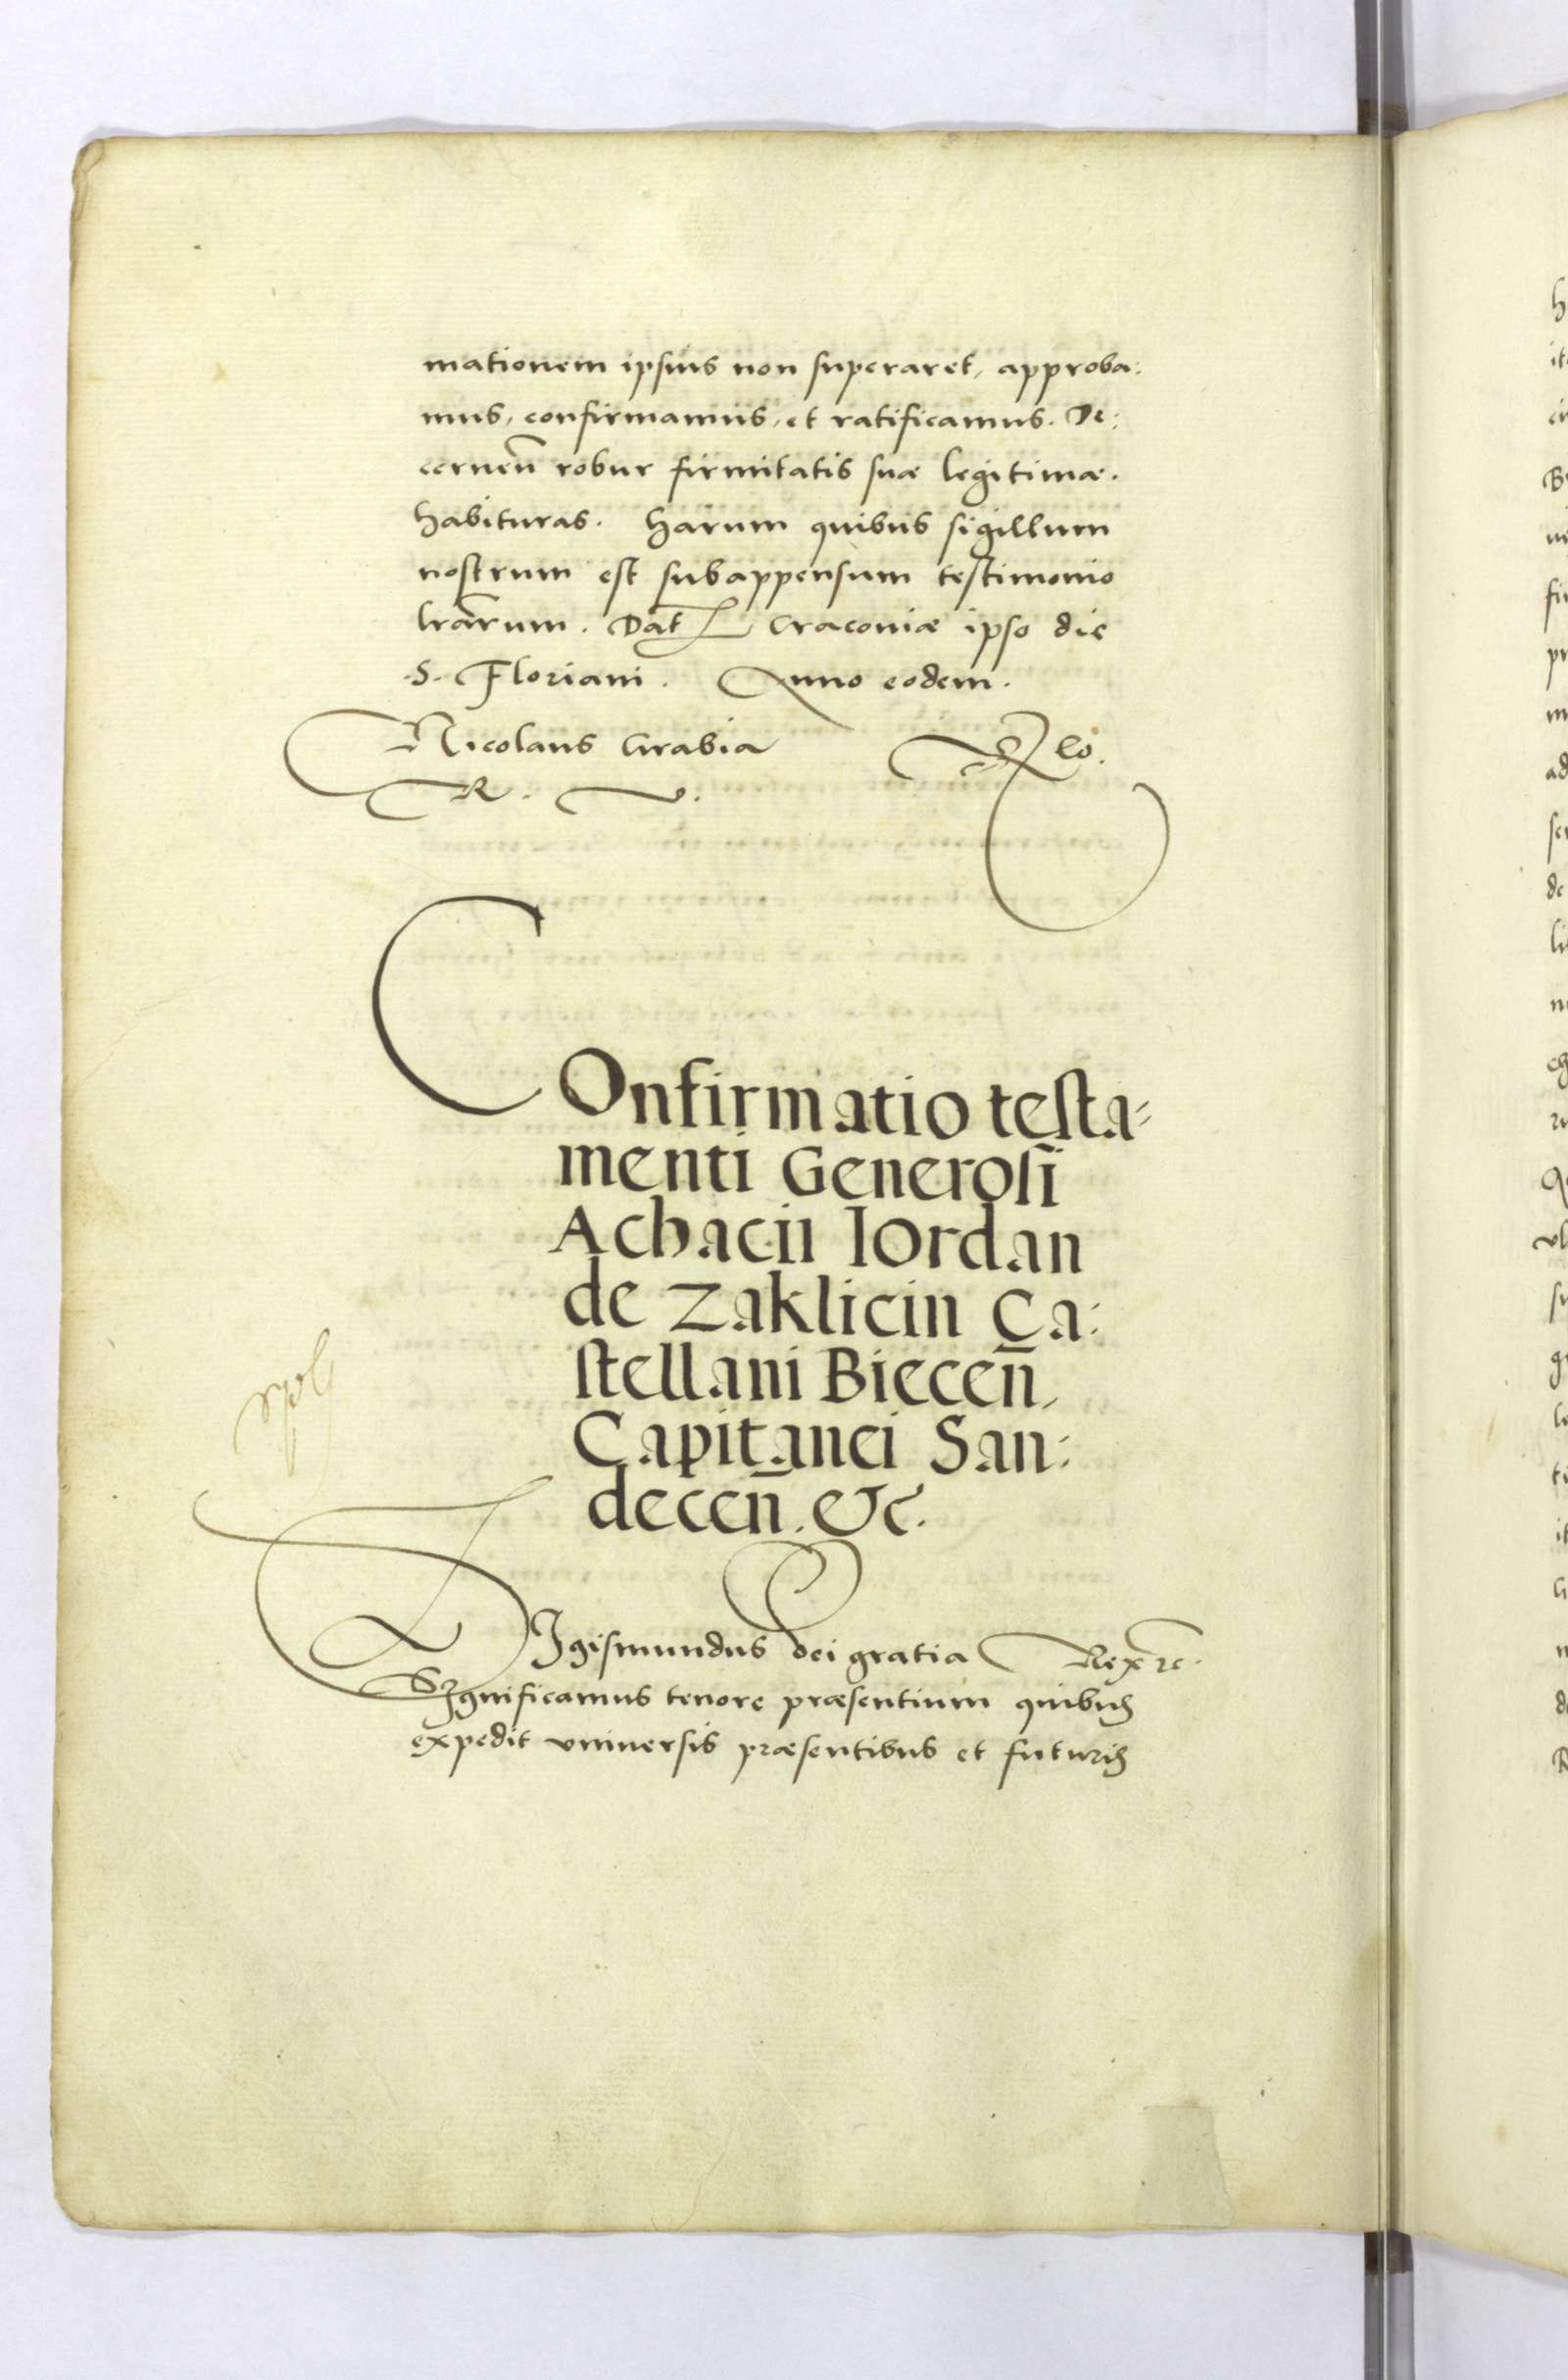 mationem ipsius non superaret, approba:
mus, confirmamus, et ratificamus. De:
cernen̄ robur firmitatis suæ legitimæ.
habituras. Harum quibus sigillum
nostrum est subappensum testimonio
lrārum. Dat Cracoviæ ipso die
S. Floriani. Anno eodem.
Nicolaus Grabia
R. V.
Confirmatio testa=
menti Generosi
Achacii Iordan
de Zaklicin Ca:
stellani Biecen̄,
Capitanei San:
decen̄. etc.
SIgismundus dei gratia Rex etc.
SIgnificamus tenore præsentium quibus
expedit vniuersis præsentibus et futuris